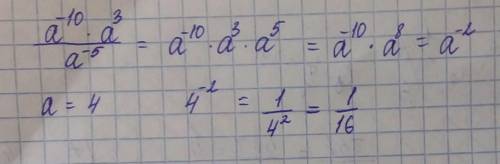 a⁻¹⁰ · a³ / a⁻⁵ = a⁻¹⁰ · a³ · a⁵ = a⁻¹⁰ · a⁸ = a⁻²
a = 4 4⁻² = 1/4² = 1/16